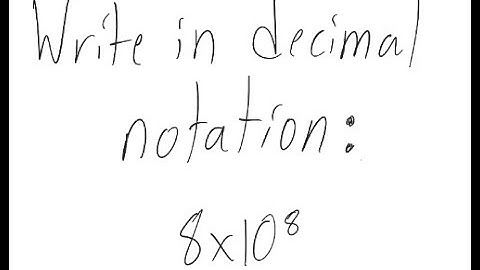 Write in decimal
notation:
8x10⁸